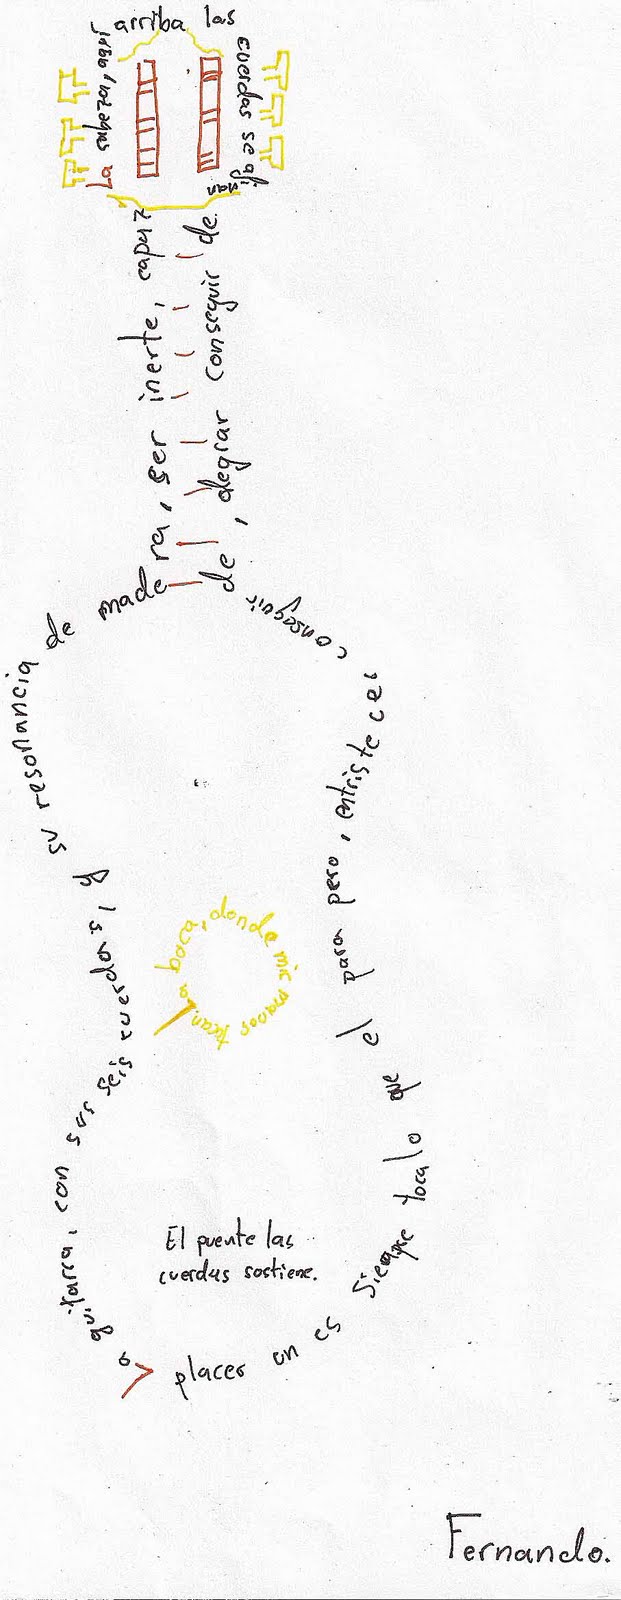 La cabeza, aquí arriba las cuerdas se afinan
La guitarra, con sus seis cuerdas, y su resonancia de madera, ser inerte, capaz
de conseguir alegrar, de conseguir entristecer, pero para el que lo toca siempre es un placer
La boca, donde mis manos tocan.
El puente las
cuerdas sostiene.
Fernando.